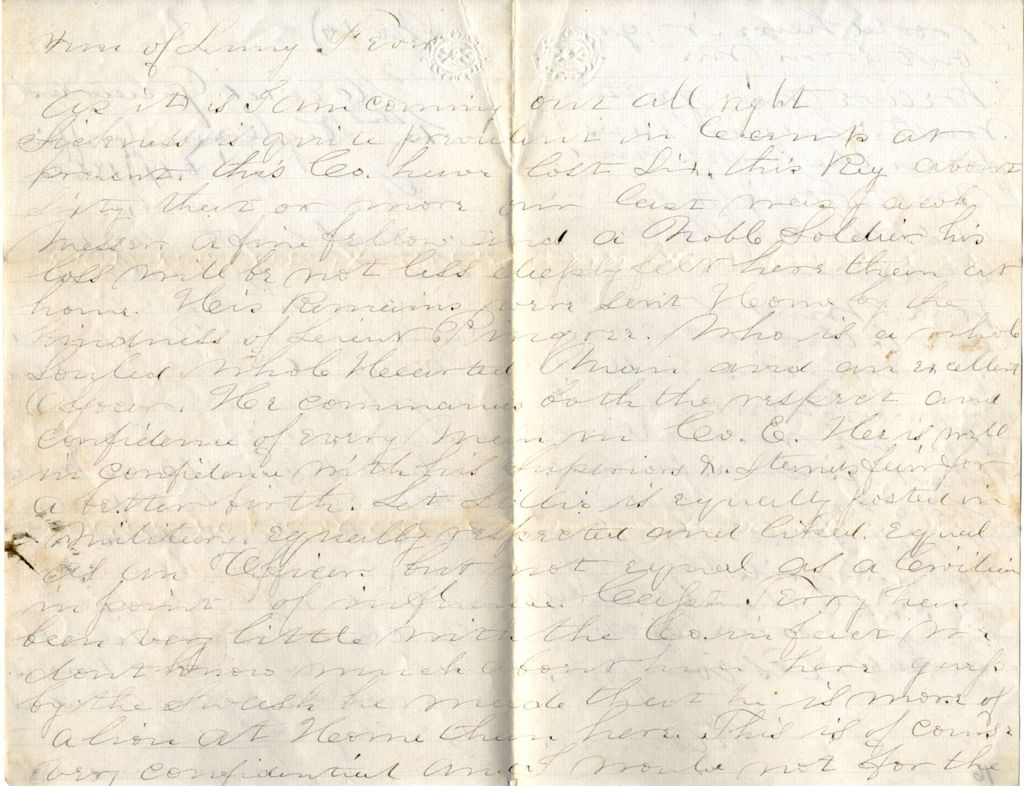 of Lung Fever
As it is I am coming out all right
Sickness is quite prevalent in Camp at
present. this Co. have lost Six, this Reg about
Sixty that or more our last was Jacob
Messer a fine fellow and a Noble Soldier his
loss will be not less deeply felt here then at
home. His Remains were sent Home by the
Kindness of Lieut Who is a whole
Souled Whole Hearted Man and an excellent
Officer. He commands both the respect and
confidence of every Man in Co. E. He is well
in confidence with his Superiors & stands fair for
a better birth. Let is equally posted in
equally respected and liked. equal
as an Officer but not equal as a Civilian
in point of influence Capt. Terry has
been very little with the Co. in fact we
dont know much about him here guess
by the he made that he is more of
a lion at Home then here. This is of course
very confidential and I would not for the